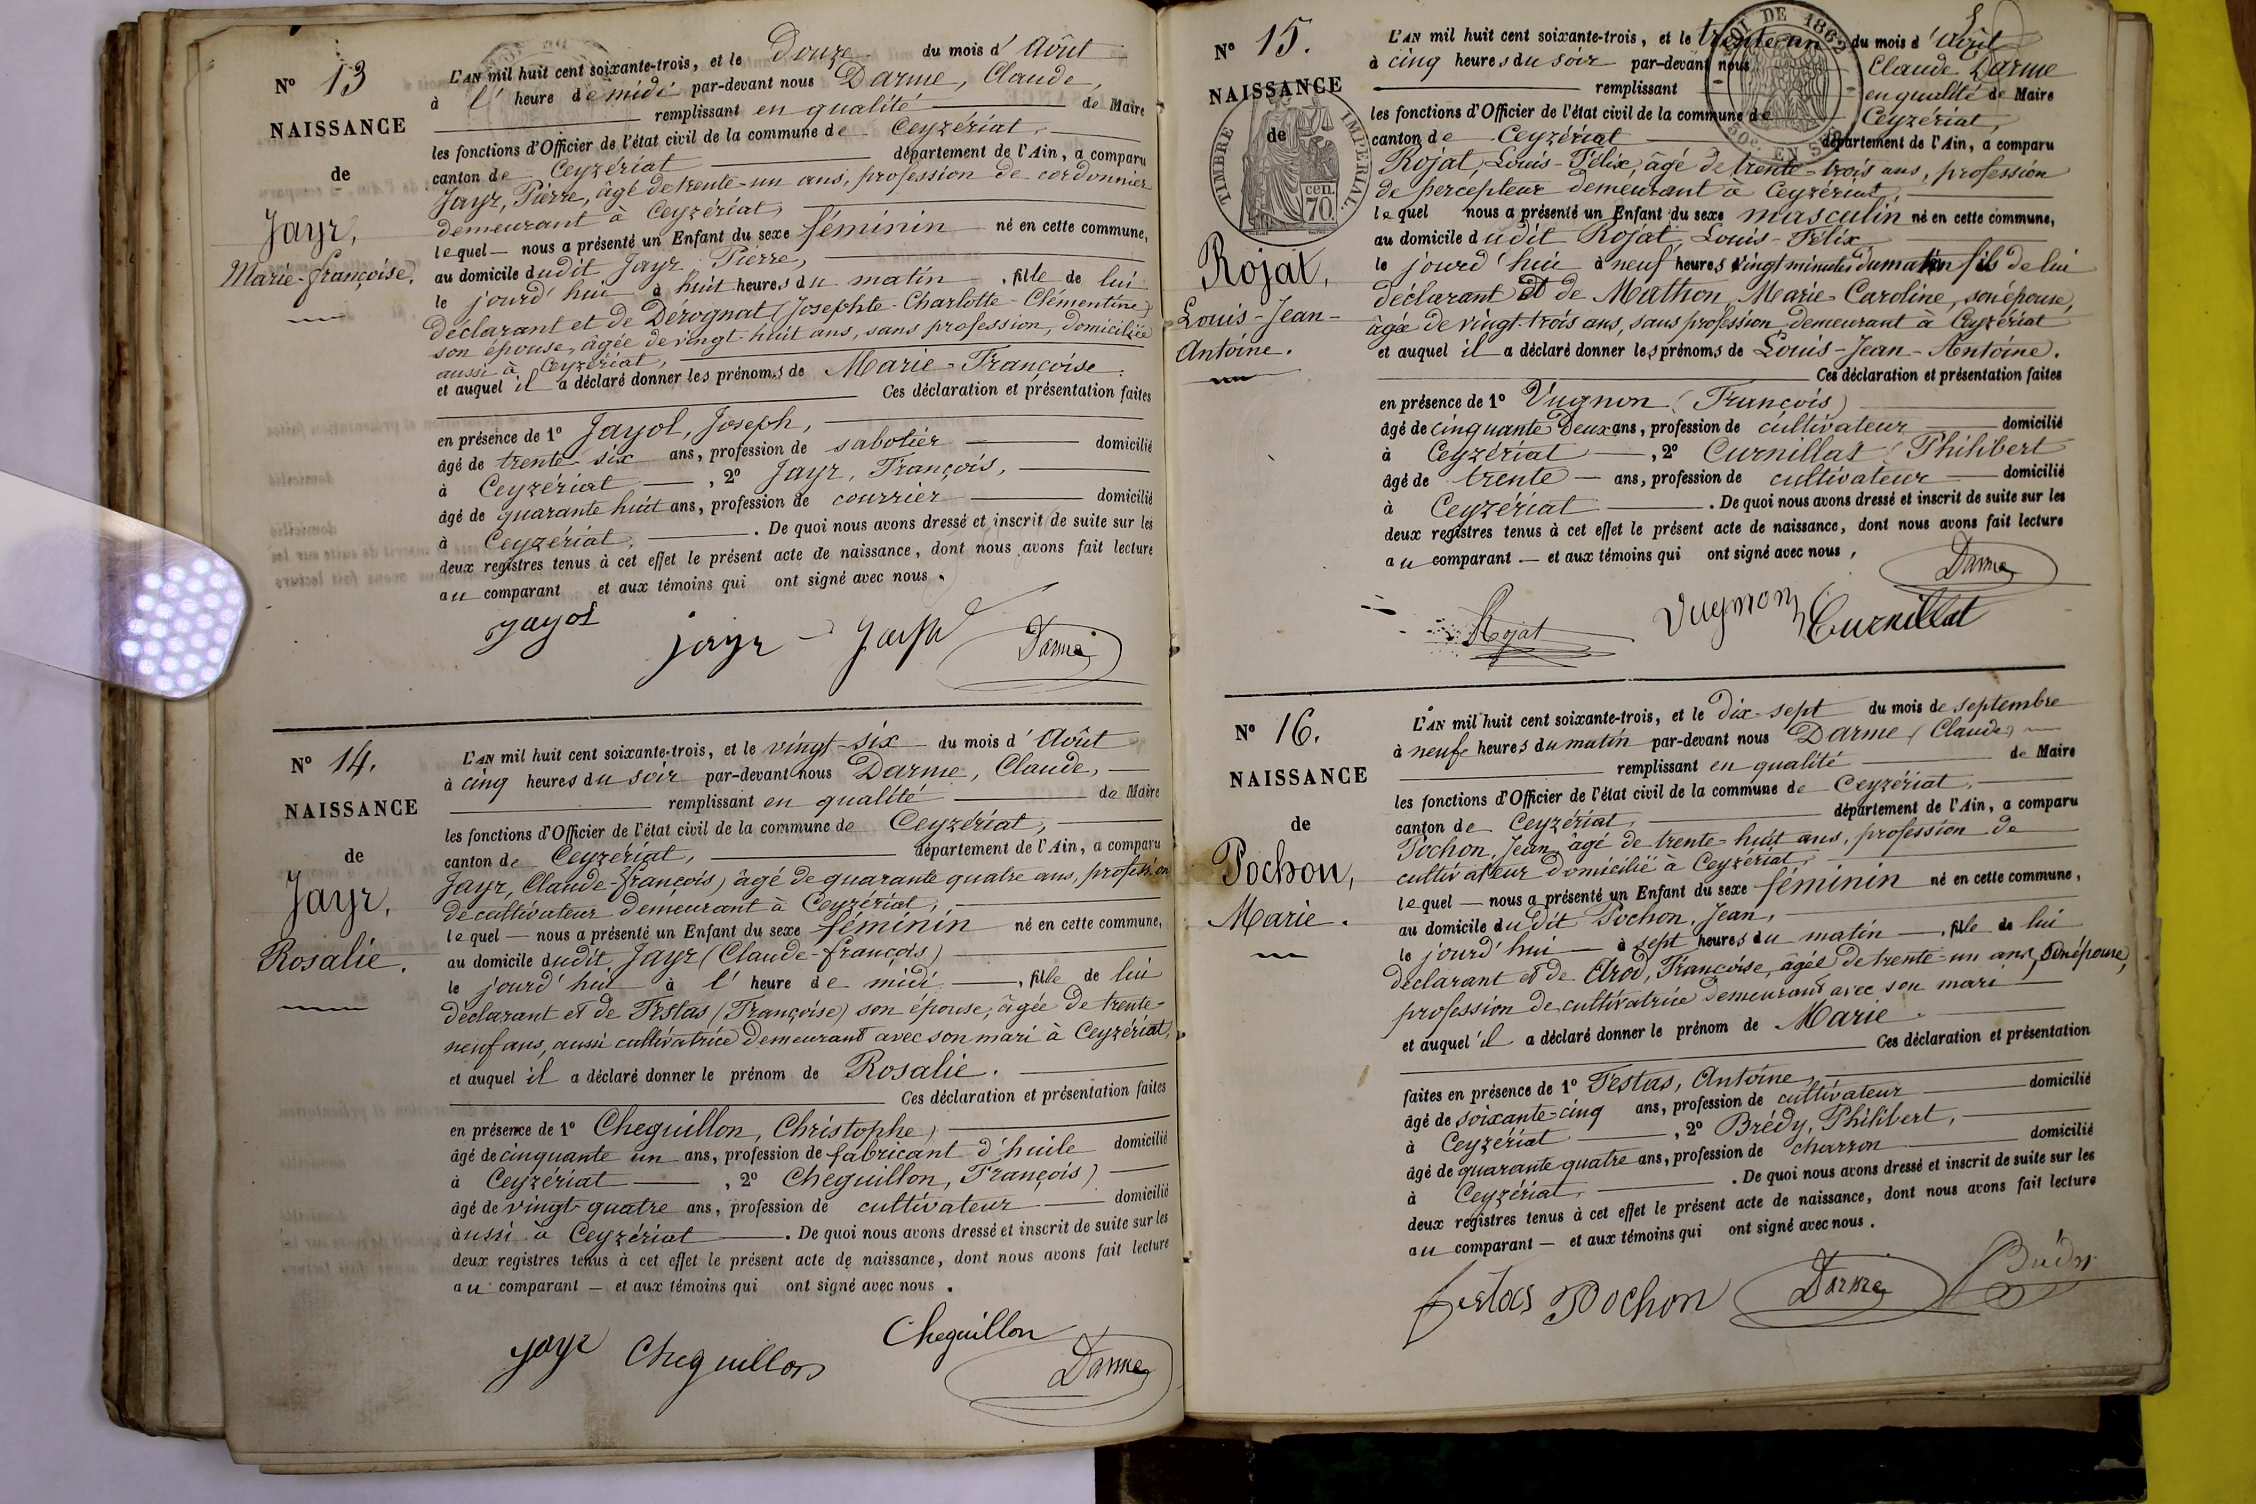 N° 13
NAISSANCE
de
Jayr,
Marie-françoise.
L'AN mil huit cent soixante-trois, et le Douze du mois d'Août
à l'heure de midi par-devant nous Darme, Claude,
remplissant en qualité de Maire
les fonctions d'Officier de l'état civil de la commune de Ceyzériat,
canton de Ceyzériat département de l'Ain, a comparu
Jayr, Pierre, âgé de trente-un ans, profession de cordonnier
demeurant à Ceyzériat,
lequel nous a présenté un Enfant du sexe féminin né en cette commune,
au domicile dudit Jayr Pierre,
le jourd'hui à huit heures du matin, fille de lui
déclarant et de Dérognat (Josephte-Charlotte-Clémentine)
son épouse, âgée de vingt-huit ans, sans profession, domiciliée
aussi à Ceyzériat,
et auquel il a déclaré donner les prénoms de Marie-Françoise.
Ces déclaration et présentation faites
en présence de 1° Jayol, Joseph,
âgé de trente-six ans, profession de sabotier domicilié
à Ceyzériat, 2° Jayr, François,
âgé de quarante huit ans, profession de courrier domicilié
à Ceyzériat. De quoi nous avons dressé et inscrit de suite sur les
deux registres tenus à cet effet le présent acte de naissance, dont nous avons fait lecture
au comparant et aux témoins qui ont signé avec nous.
jayol jayr Darme
N° 14.
NAISSANCE
de
Jayr,
Rosalie.
L'AN mil huit cent soixante-trois, et le vingt-six du mois d'Août
à cinq heures du soir par-devant nous Darme, Claude,
remplissant en qualité de Maire
les fonctions d'Officier de l'état civil de la commune de Ceyzériat,
canton de Ceyzériat, département de l'Ain, a comparu
Jayr, Claude-françois) âgé de quarante quatre ans, profession
de cultivateur demeurant à Ceyzériat,
lequel nous a présenté un Enfant du sexe féminin né en cette commune,
au domicile dudit Jayr (Claude-françois)
le jourd'hui à l'heure de midi, fille de lui
déclarant et de Testas (Françoise) son épouse, âgée de trente-
neuf ans, aussi cultivatrice demeurant avec son mari à Ceyzériat,
et auquel il a déclaré donner le prénom de Rosalie.
Ces déclaration et présentation faites
en présence de 1° Cheguillon, Christophe)
âgé de cinquante un ans, profession de fabricant d'huile domicilié
à Ceyzériat, 2° Cheguillon, François)
âgé de vingt-quatre ans, profession de cultivateur domicilié
aussi à Ceyzériat. De quoi nous avons dressé et inscrit de suite sur les
deux registres tenus à cet effet le présent acte de naissance, dont nous avons fait lecture
au comparant et aux témoins qui ont signé avec nous.
jayr Cheguillon Cheguillon Darme
N° 15.
NAISSANCE
de
TIMBRE IMPERIAL.
cen.
70.
Rojat,
Louis-Jean-
Antoine.
LOI DE 1862
50c. EN SUS
L'AN mil huit cent soixante-trois, et le trente-un du mois d'Août
à cinq heures du soir par-devant nous Claude Darme
remplissant en qualité de Maire
les fonctions d'Officier de l'état civil de la commune de Ceyzériat,
canton de Ceyzériat département de l'Ain, a comparu
Rojat, Louis-Félix, âgé de trente-trois ans, profession
de percepteur demeurant à Ceyzériat,
lequel nous a présenté un Enfant du sexe masculin né en cette commune,
au domicile dudit Rojat, Louis-Félix
le jourd'hui à neuf heures vingt minutes du matin fils de lui
déclarant et de Mathon, Marie-Caroline, son épouse,
âgée de vingt-trois ans, sans profession demeurant à Ceyzériat
et auquel il a déclaré donner les prénoms de Louis-Jean-Antoine.
Ces déclaration et présentation faites
en présence de 1° Vugnon (François)
âgé de cinquante Deux ans, profession de cultivateur domicilié
à Ceyzériat, 2° Curnillat (Philibert
âgé de trente ans, profession de cultivateur domicilié
à Ceyzériat. De quoi nous avons dressé et inscrit de suite sur les
deux registres tenus à cet effet le présent acte de naissance, dont nous avons fait lecture
au comparant et aux témoins qui ont signé avec nous,
Darme
Rojat Vugnon Curnillat
N° 16.
NAISSANCE
de
Pochon,
Marie.
L'AN mil huit cent soixante-trois, et le dix-sept du mois de septembre
à neuf heures du matin par-devant nous Darme (Claude)
remplissant en qualité de Maire
les fonctions d'Officier de l'état civil de la commune de Ceyzériat,
canton de Ceyzériat, département de l'Ain, a comparu
Pochon, Jean, âgé de trente-huit ans, profession de
cultivateur domicilié à Ceyzériat,
lequel nous a présenté un Enfant du sexe féminin né en cette commune,
au domicile dudit Pochon, Jean,
le jourd'hui à sept heures du matin, fille de lui
déclarant et de Arod, Françoise, âgée de trente-un ans, son épouse,
profession de cultivatrice demeurant avec son mari
et auquel il a déclaré donner le prénom de Marie.
Ces déclaration et présentation
faites en présence de 1° Testas, Antoine,
âgé de soixante-cinq ans, profession de cultivateur domicilié
à Ceyzériat, 2° Brédy, Philibert,
âgé de quarante quatre ans, profession de charron domicilié
à Ceyzériat. De quoi nous avons dressé et inscrit de suite sur les
deux registres tenus à cet effet le présent acte de naissance, dont nous avons fait lecture
au comparant et aux témoins qui ont signé avec nous.
Testas Pochon Darme Brédy